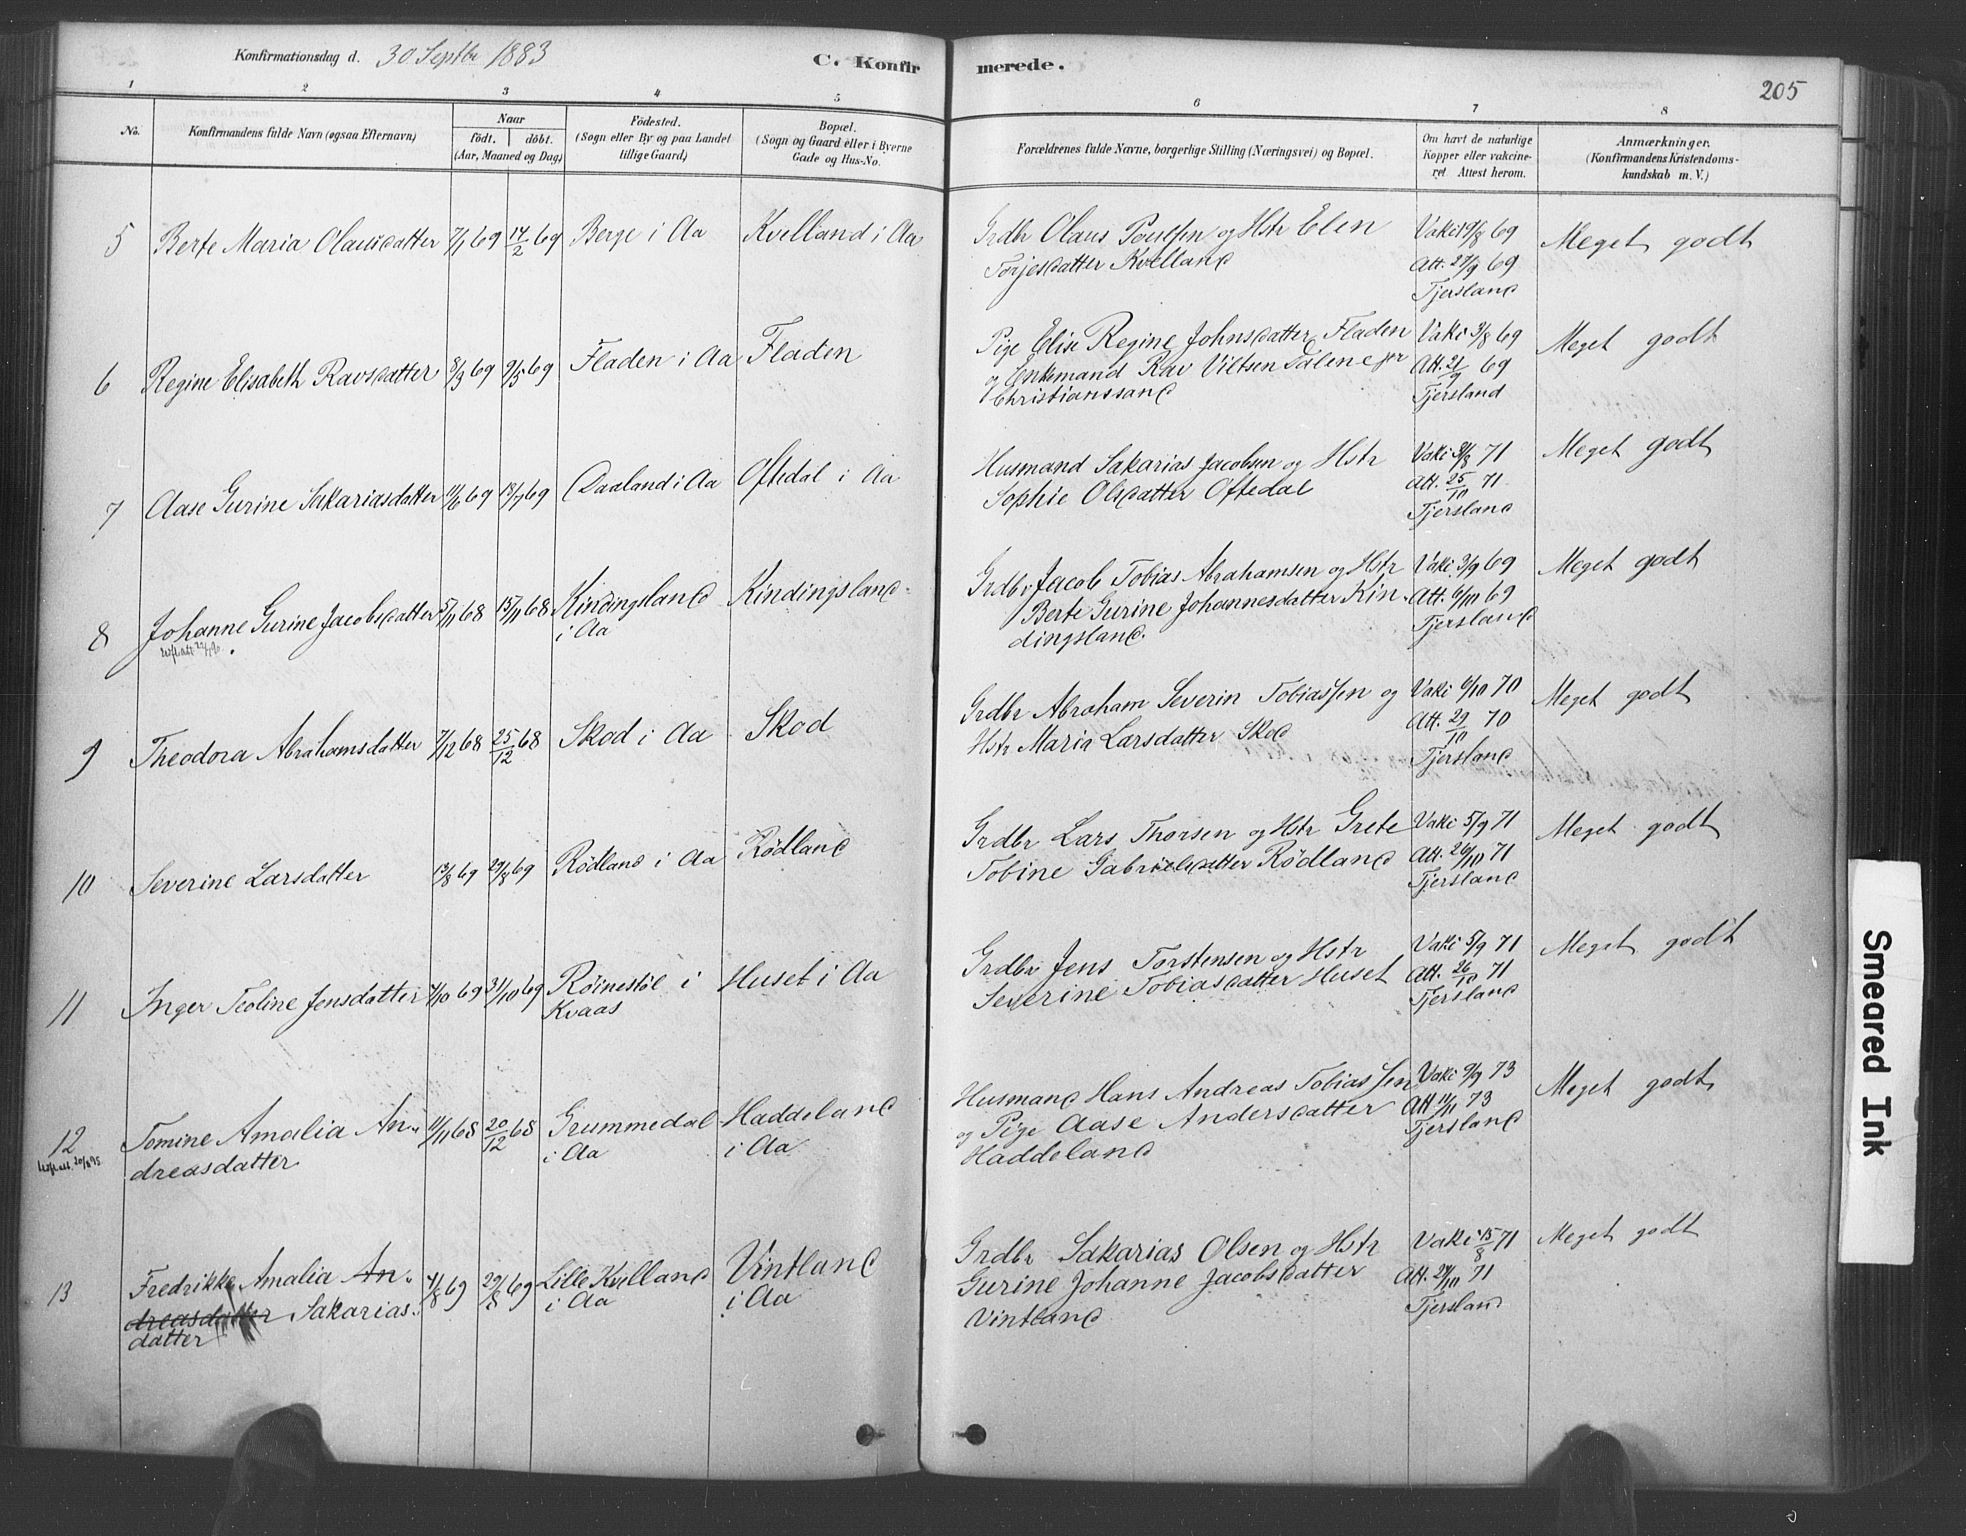 Konfirmationsdag d. 30 Septbr 1883
C. Konfirmerede.
205
1 2 3 4 5 6 7 8
No.
Konfirmandens fulde Navn (ogsaa Efternavn)
Naar
født. døbt.
(Aar, Maaned og Dag)
Fødested.
(Sogn eller By og paa Landet
tillige Gaard)
Bopæl.
(Sogn og Gaard eller i Byerne
Gade og Hus-No.
Forældrenes fulde Navne, borgerlige Stilling (Næringsvei) og Bopæl.
Om havt de naturlige
Kopper eller vakcine-
ret Attest herom.
Anmærkninger.
(Konfirmandens Kristendoms-
kundskab m. V.)
5 Berte Maria Olausdatter 7/1 69 14/2 69 Berge i Aa Kvelland i Aa
Grdbr Olaus Poulsen og Hstr Elen
Torjesdatter Kvelland
Vaki 19/8 69
Att. 27/9 69
Tjersland
Meget godt
6 Regine Elisabeth Ravsdatter 8/3 69 9/5 69 Fladen i Aa Fladen
Pige Elise Regine Johnsdatter Fladen
og Enkemand Rav Viltsen
Christianssand
Vaki 3/8 69
Att. 21/9 69
Tjersland
Meget godt
7 Aase Gurine Sakariasdatter 11/6 69 18/7 69 Daaland i Aa Oftedal i Aa
Husmand Sakarias Jacobsen og Hstr
Sophie Olsdatter Oftedal
Vaki 31/8 71
Att. 25/10 71
Tjersland
Meget godt
8 Johanne Gurine Jacobsdatter 5/11 68 15/11 68 Kindingsland
i Aa
Kindingsland
Grdbr Jacob Tobias Abrahamsen og Hstr
Berte Gurine Johannesdatter Kin-
dingsland.
Vaki 3/9 69
Att. 6/10 69
Tjersland
Meget godt
9 Theodora Abrahamsdatter 7/12 68 25/12 68 Skod i Aa Skod
Grdbr Abraham Severin Tobiassen og
Hstr Maria Larsdatter Skod
Vaki 6/10 70
Att. 29/10 70
Tjersland
Meget godt
10 Severine Larsdatter 13/8 69 29/8 69 Rødland i Aa Rødland
Grdbr Lars Thorsen og Hstr Grete
Tobine Gabrielsdatter Rødland
Vaki 5/9 71
Att. 26/10 71
Tjersland
Meget godt
11 Inger Teoline Jensdatter 7/10 69 31/10 69 Røinestøl i
Kvaas
Huset i Aa
Grdbr Jens Torstensen og Hstr
Severine Tobiasdatter Huset
Vaki 5/9 71
Att. 26/10 71
Tjersland
Meget godt
12 Tomine Amalia An-
dreasdatter
11/11 68 20/12 68 Grummedal
i Aa
Haddeland
i Aa
Husmand Hans Andreas Tobiassen
og Pige Aase Andersdatter
Haddeland
Vaki 9/9 73
Att 11/11 73
Tjersland
Meget godt
13 Fredrikke Amalia An-
dreasdatter Sakarias-
datter
7/8 69 29/8 69 Lille Kvelland
i Aa
Vintland
i Aa
Grdbr Sakarias Olsen og Hstr
Gurine Johanne Jacobsdatter
Vintland
Vaki 15/8 71
Att. 27/10 71
Tjersland
Meget godt
Smeared Ink